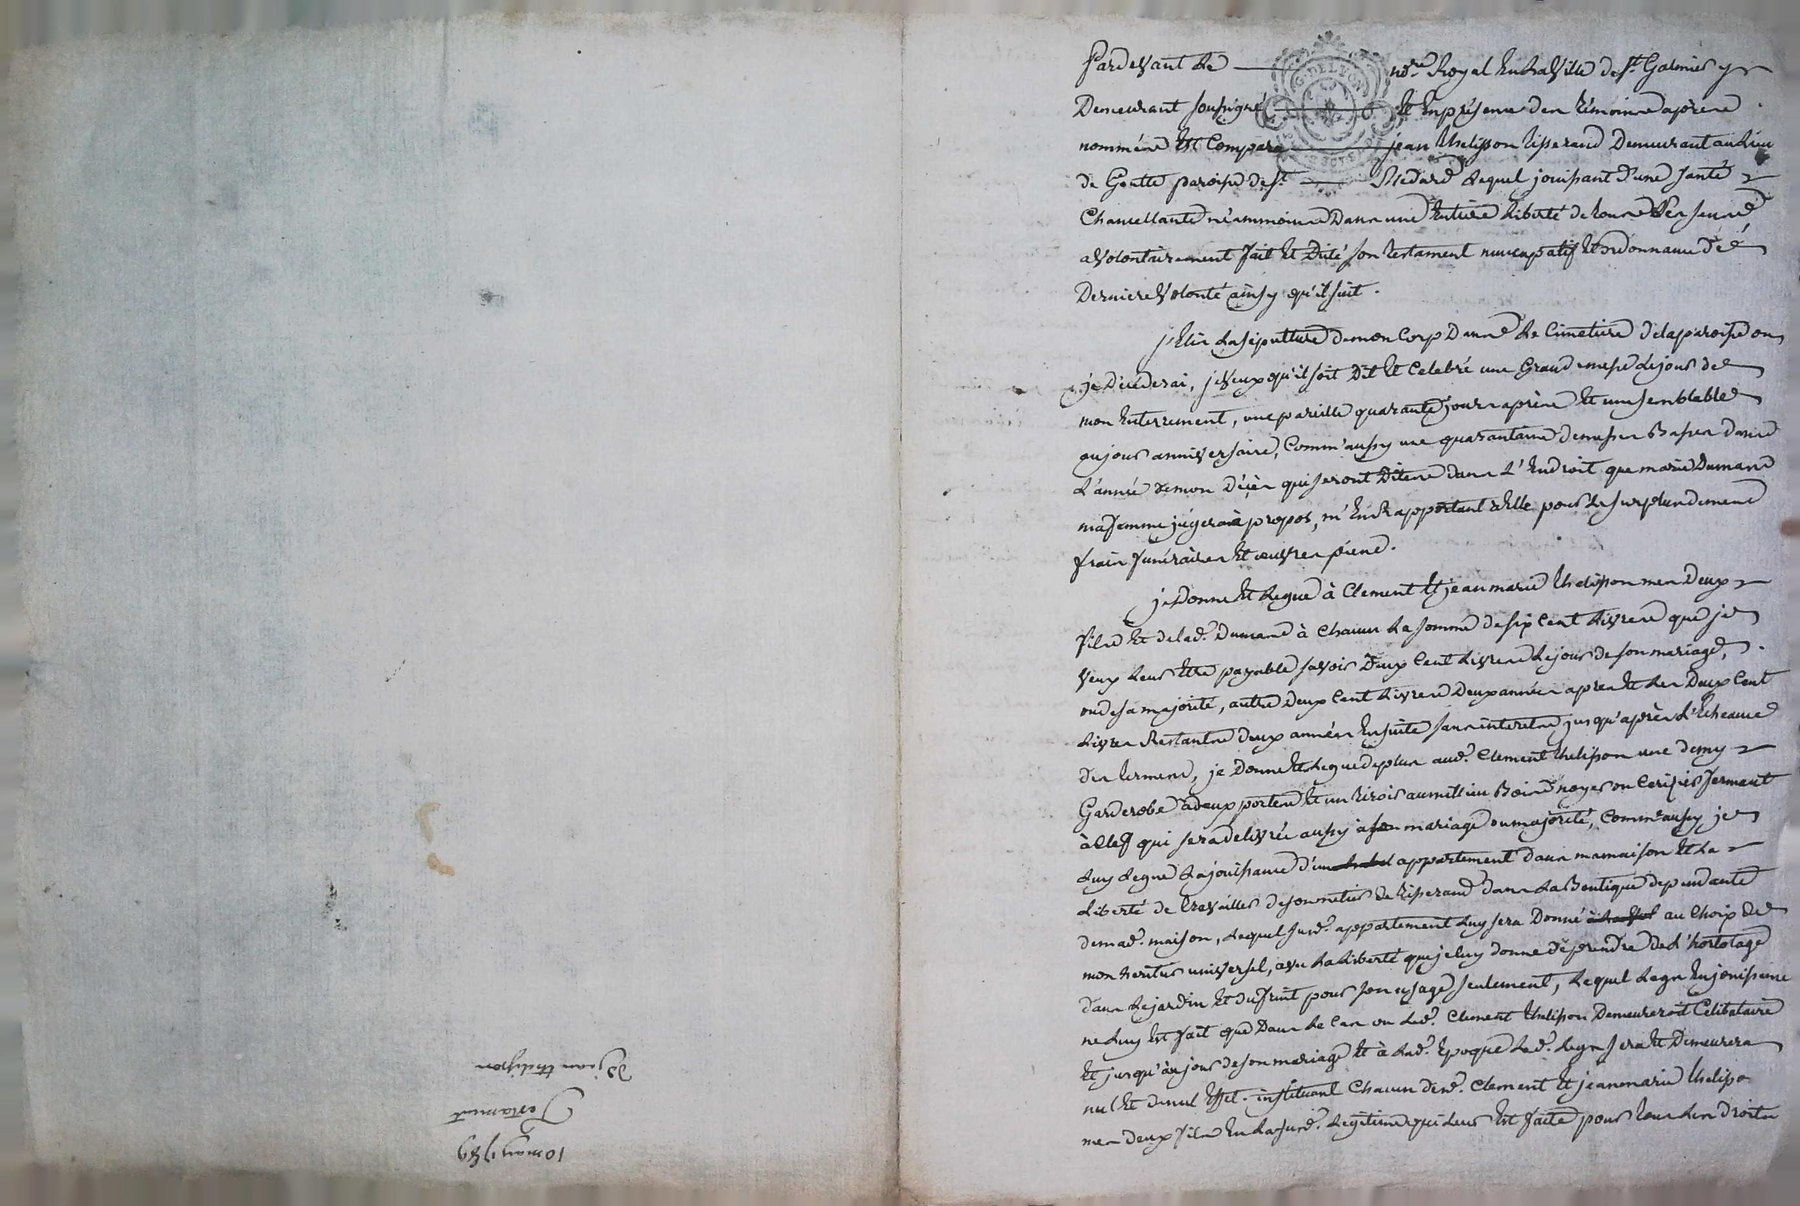 Pardevant Le nore. Royal en la Ville de St. Galmier y
G. DE LYON
Demeurant soussigné et en présence des témoins après
nommés est Comparu jean thelisson tisserand Demeurant au Lieu
de Goutte paroisse de St. Medard Lequel jouissant d'une santé
Chancellante néanmoins Dans une entiere Liberté de tous ses sens
a volontairement fait et Dité son testament nuncupatif et ordonnance de
Derniere Volonté ainsy qu'il suit.
j'Elis La sepulture de mon Corp Dans Le Cimetiere de la paroisse ou
je Décéderai, je Veux qu'il soit Dit et Celebré une Grand messe Le jour de
mon enterrement, une pareille quarante jours après et une semblable
au jour anniversaire, Comm'aussy une quarantaine de messes Basses dans
L'année de mon Décès qui seront Dites dans L'endroit que marie Dumand
ma femme jugera à propos, m'en Rapportant à elle pour Le surplus de mes
frais funéraires et œuvres pies.
je Donne et Legue à Clement et jean marie thelisson mes Deux
fils et de lad. Dumand à Chacun La somme de six Cent Livres que je
veux Leur etre payable savoir Deux Cent Livres Le jour de son mariage,
ou de sa majorité, autre Deux Cent Livres Deux années apres et Les Deux Cent
Livres Restantes deux années Ensuite sans interets jusqu'après L'Echeance
des termes, je Donne et Legue de plus aud. Clement thelisson une demy
Garderobe à deux portes et un tiroir au millieu Bois noyer ou Cerizier fermant
à Clef qui sera delivrée aussy à son mariage ou majorité, Comm'aussy je
Luy Legue La jouissance d'un appartement dans ma maison et La
Liberté de travailler de son metier de tisserand dans La Boutique dependante
de mad. maison, Lequel susd. appartement Luy sera Donné au Choix de
mon heritier universel, avec La Liberté que je luy donne de prendre de L'hortolage
dans Le jardin et du fruit pour son usage seulement, Lequel Legs en jouissance
ne Luy est fait que Dans Le Cas ou Led. Clement thelisson Demeureroit Celibataire
et jusqu'au jour de son mariage et à Lad. Epoque Led. Legs sera et Demeurera
nul et de nul Effet. instituant Chacun desd. Clement et jean marie thelisson
mes deux fils en La susd. Legitime qui Leur est faite pour tous Les droits
10 may 1789
Testament
De jean thelisson